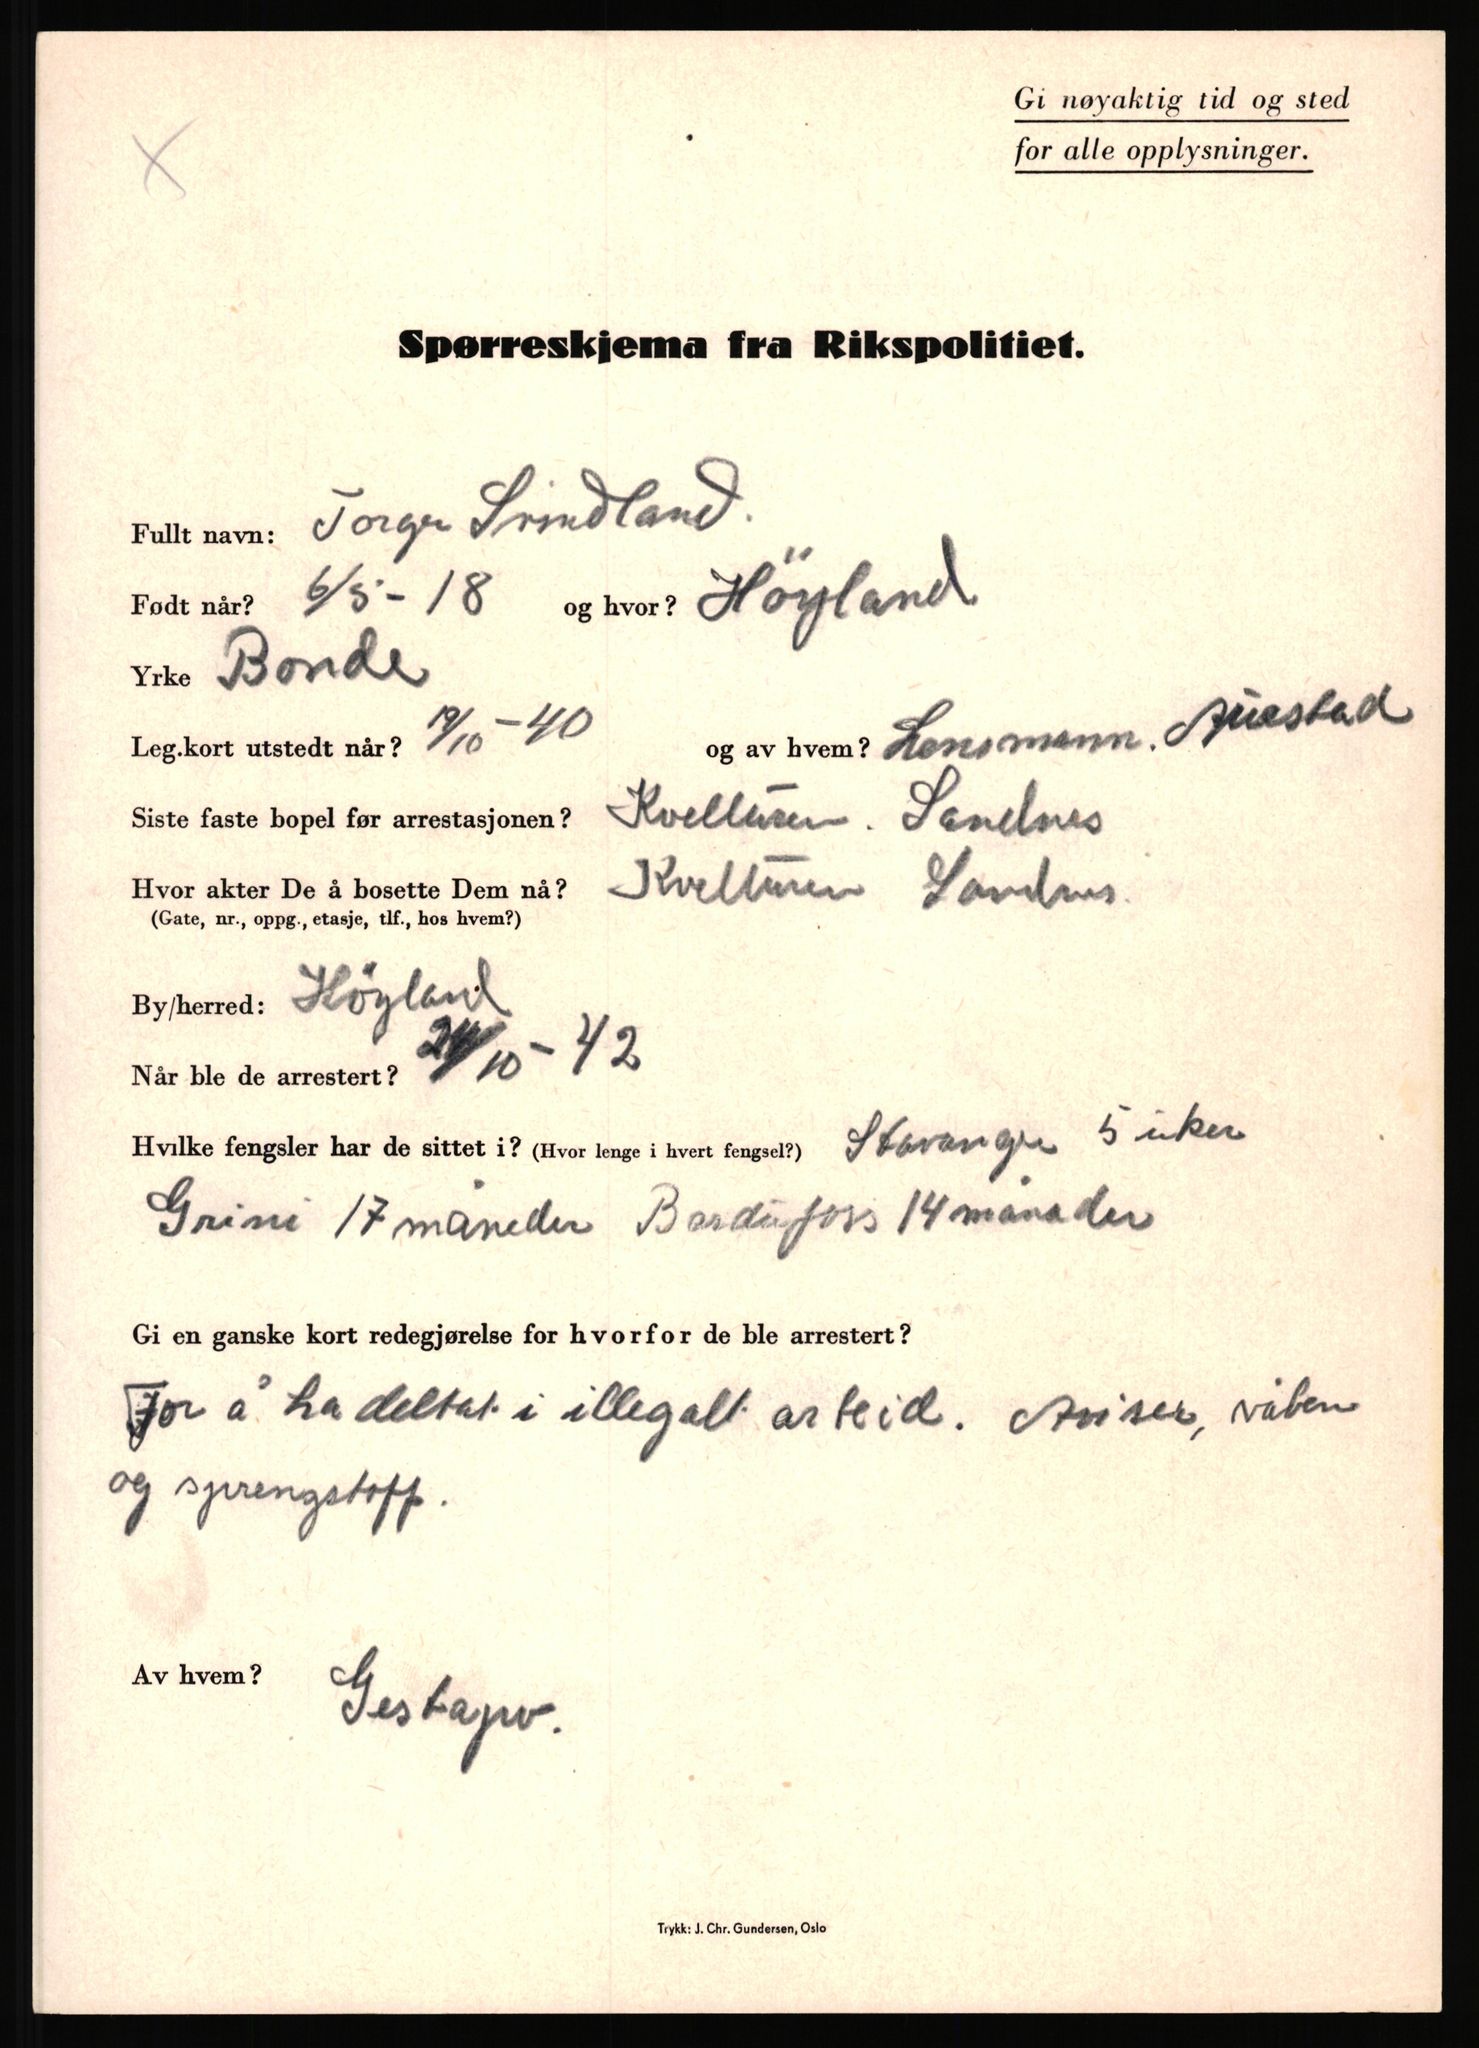 Gi nøyaktig tid og sted
for alle opplysninger.
Spørreskjema fra Rikspolitiet.
Fullt navn: Torger Svindland.
Født når? 6/5-18 og hvor? Höyland
Yrke Bonde
Leg.kort utstedt når? 19/10-40 og av hvem? Lensmann. Auestad
Siste faste bopel før arrestasjonen? Sandnes
Hvor akter De å bosette Dem nå? Sandnes.
(Gate, nr., oppg., etasje, tlf., hos hvem?)
By/herred: Höyland
Når ble de arrestert? 24/10-42
Hvilke fengsler har de sittet i? (Hvor lenge i hvert fengsel?) Stavanger 5 uker
Grini 17 måneder Bardufoss 14 månader
Gi en ganske kort redegjørelse for hvorfor de ble arrestert?
For å ha deltat i illegalt arbeid. Aviser, våben
og sprengstoff.
Av hvem? Gestapo.
Trykk: J. Chr. Gundersen, Oslo